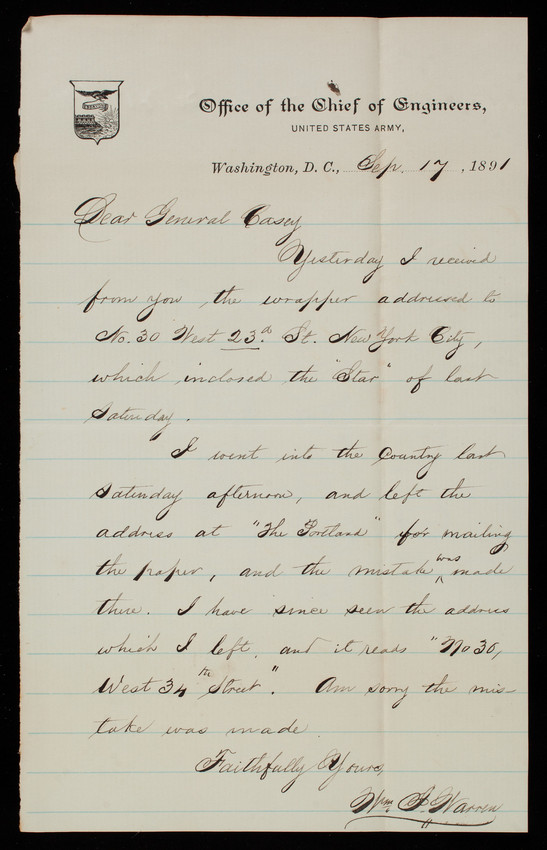 Office of the Chief of Engineers,
UNITED STATES ARMY,
Washington, D. C., Sep. 17, 1891
Dear General Casey
Yesterday I received
from you, the wrapper addressed to
No. 30 West 23d. St. New York City,
which inclosed the "Star" of last
Saturday.
I went into the Country last
Saturday afternoon, and left the
address at "The Portland" for mailing
the paper, and the mistake was made
there. I have since seen the address
which I left, and it reads "No 30,
West 34th Street". Am sorry the mis-
take was made.
Faithfully Yours,
Wm. S. Warren